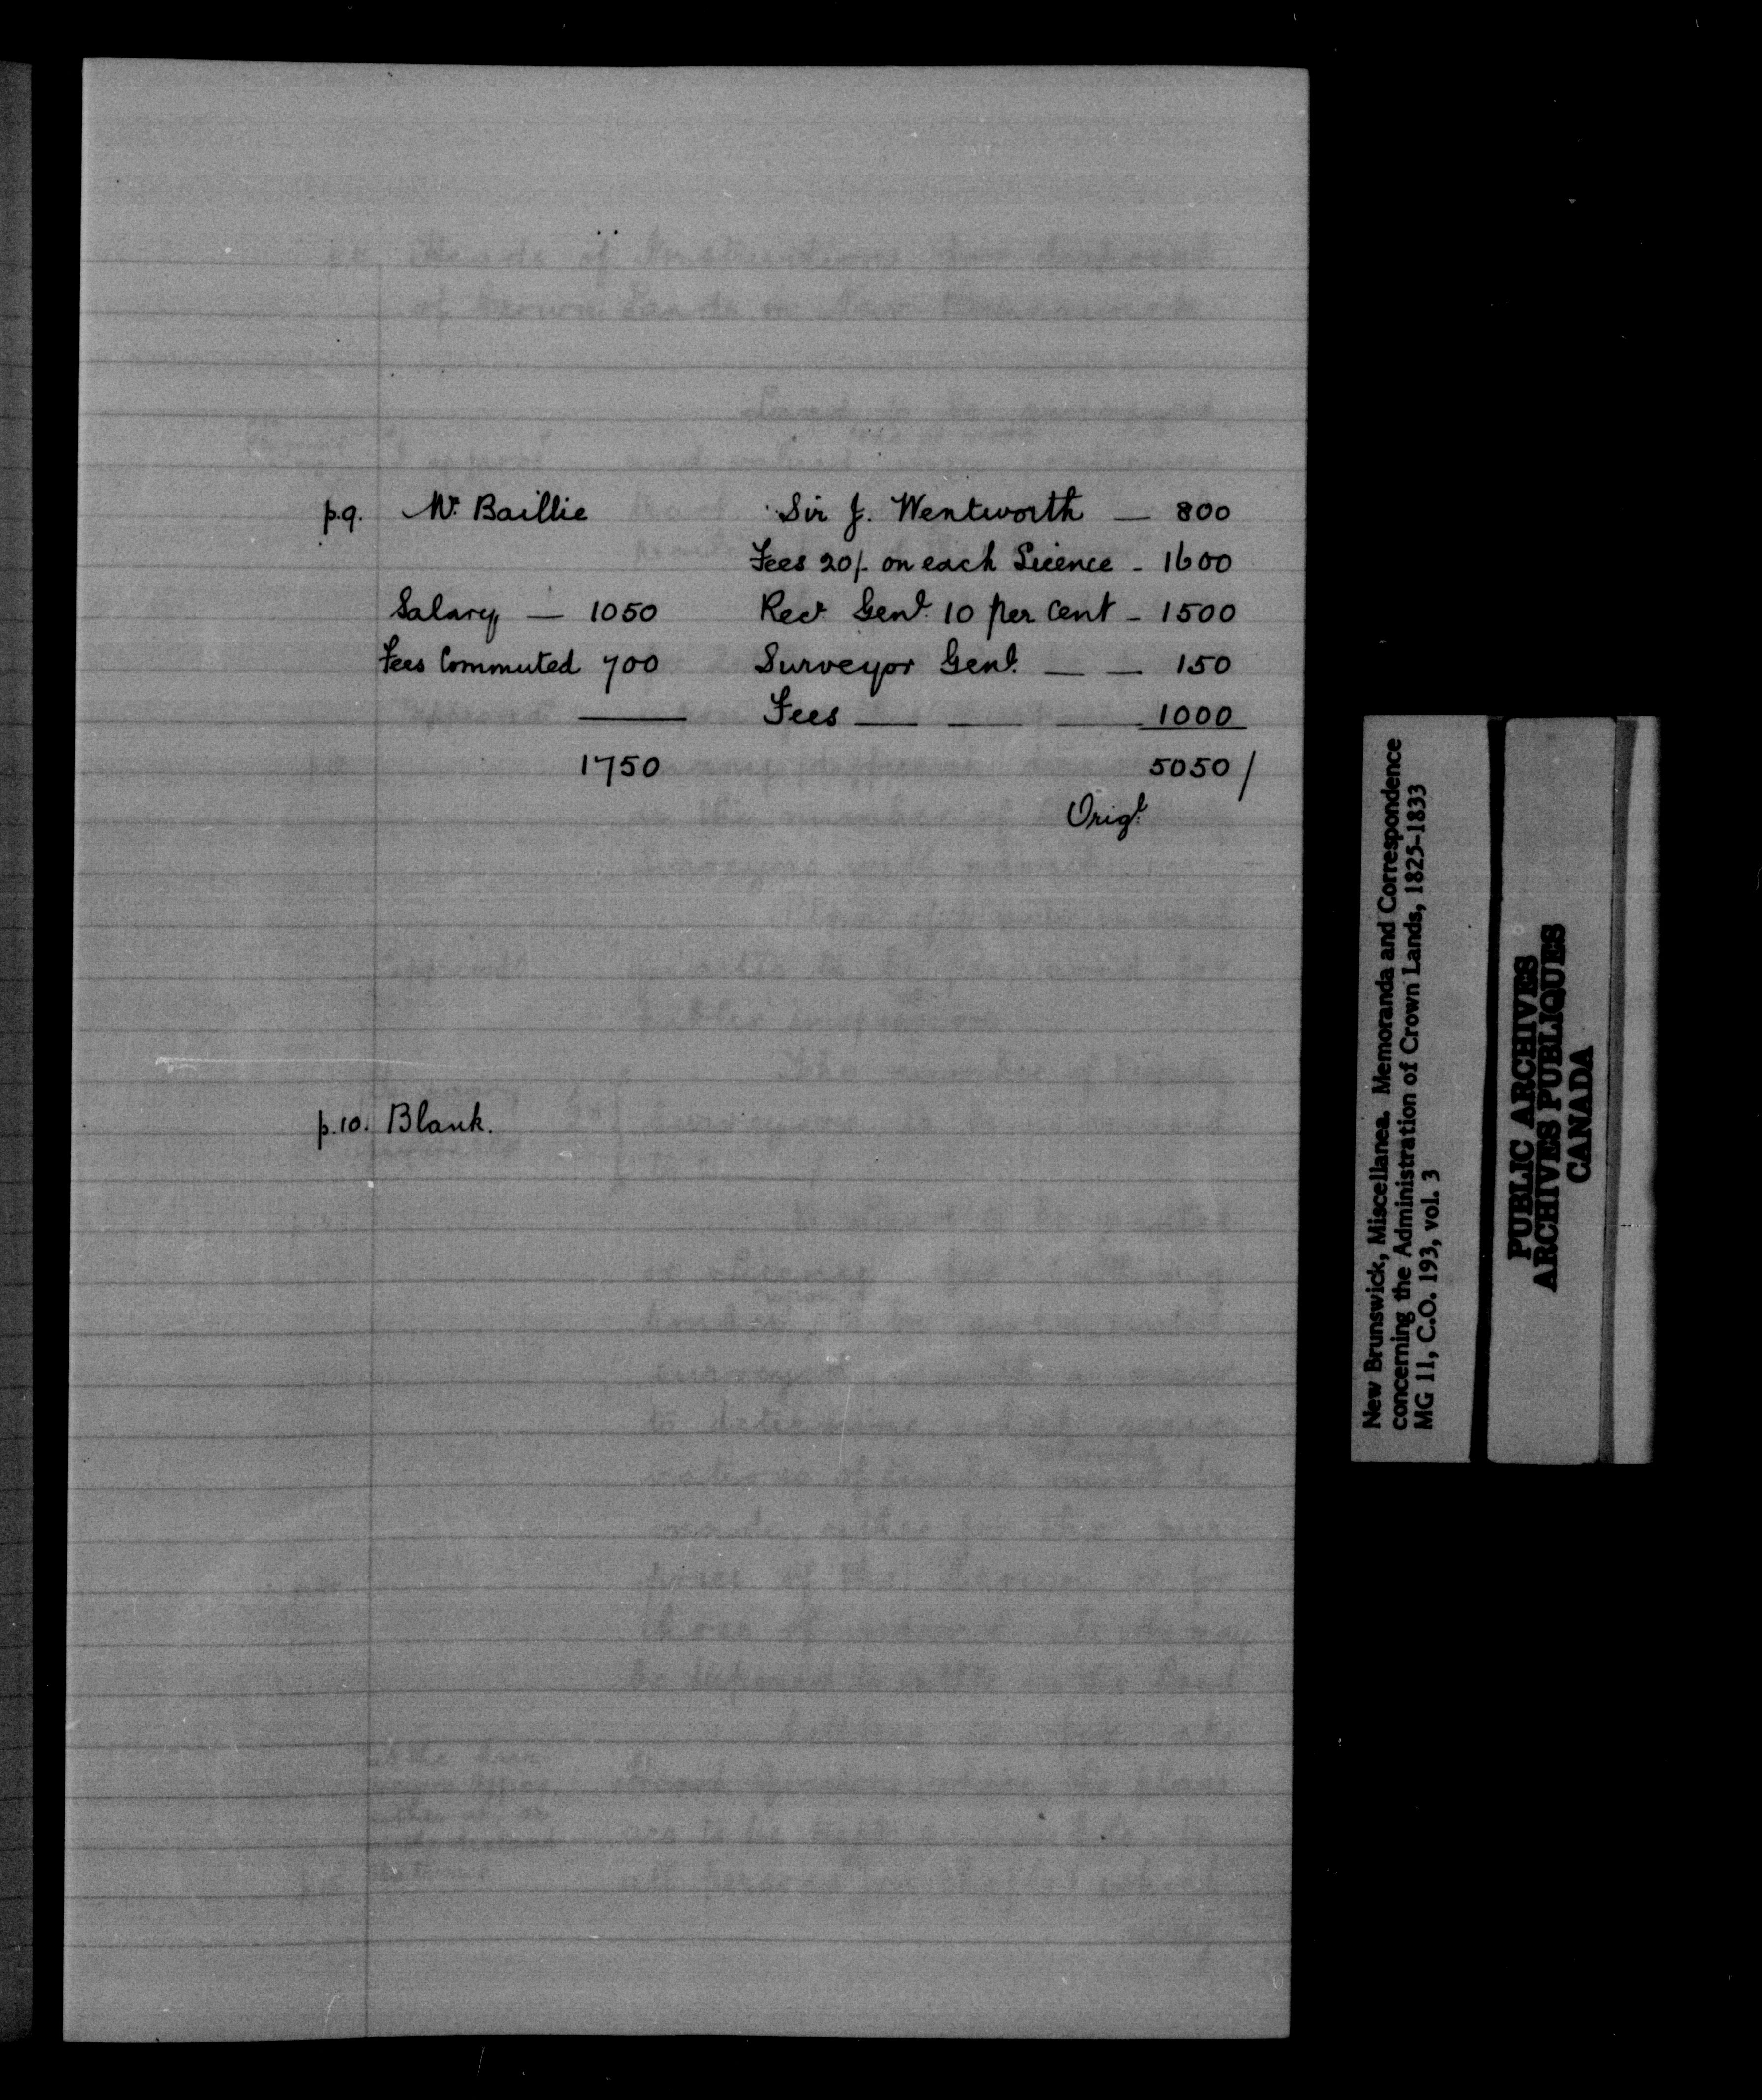 p.9. Mr. Baillie Sir J. Wentworth — 800
Fees 20/- on each Licence - 1600
Salary — 1050 Recr Genl. 10 per cent - 1500
Fees Commuted 700 Surveyor Genl. — — 150
Fees — — — 1000
1750 5050/
Origl.
p.10. Blank.
New Brunswick, Miscellanea. Memoranda and Correspondence
concerning the Administration of Crown Lands, 1825-1833
MG 11, C.O. 193, vol. 3
PUBLIC ARCHIVES
ARCHIVES PUBLIQUES
CANADA